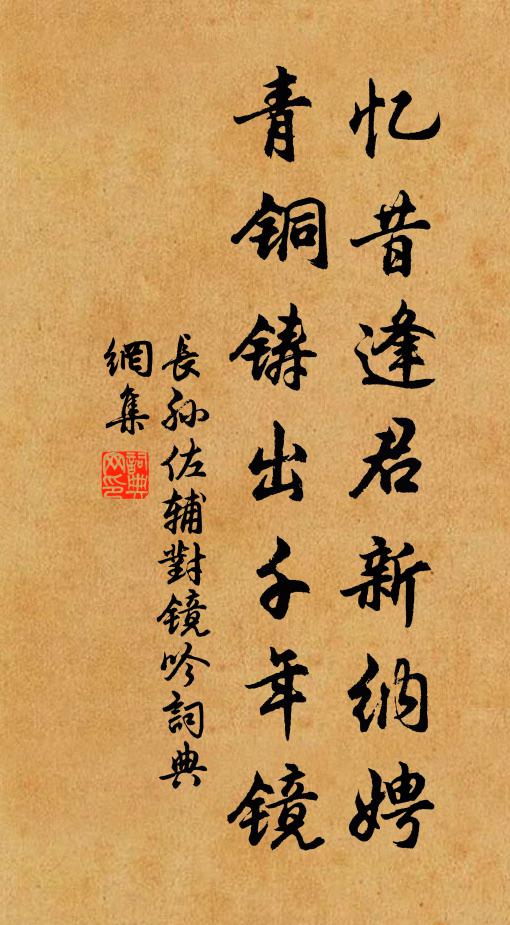 忆昔逢君新纳娉
青铜铸出千年镜
長孙佐辅對镜吟詞典
網集
詞典网印